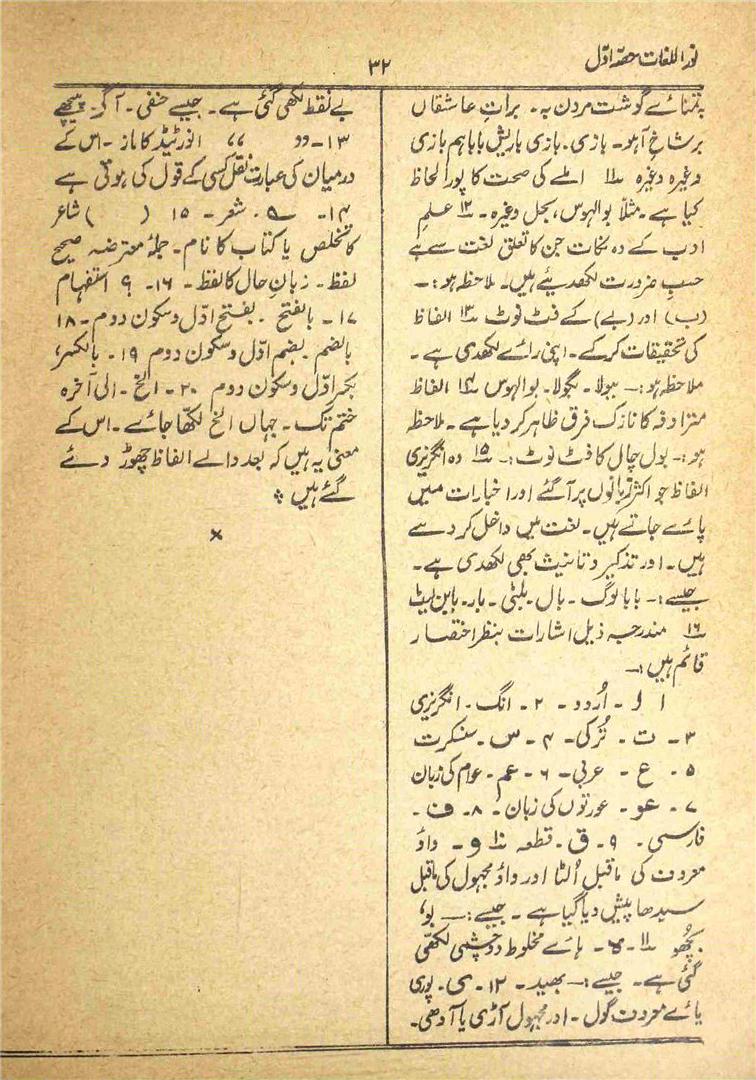 نور اللغات حصّہ اوّل
۳۲
بتمنائے گوشت مردن بہ۔ براتِ عاشقاں
برشاخِ آہو۔ بازی۔ بازی باریش بابا ہم بازی
وغیرہ وغیرہ ۱۱ املے کی صحت کا پورا لحاظ
کیا ہے۔ مثلاً بوالہوس، بحل وغیرہ۔ ۱۲ علم
ادب کے وہ نکات جن کا تعلق لغت سے ہے
حسبِ ضرورت لکھدیئے ہیں۔ ملاحظہ ہو:۔
(ب) اور (بے) کے فٹ نوٹ ۱۳ الفاظ
کی تحقیقات کرکے۔ اپنی رائے لکھدی ہے۔
ملاحظہ ہو:— ببولا۔ بگولا۔ بوالہوس ۱۴ الفاظ
مترادفہ کا نازک فرق ظاہر کر دیا ہے۔ ملاحظہ
ہو:۔ بول چال کا فٹ نوٹ:۔ ۱۵ وہ انگریزی
الفاظ جو اکثر زبانوں پر آگئے اور اخبارات میں
پائے جاتے ہیں۔ لغت میں داخل کردے
ہیں۔ اور تذکیر و تانیث بھی لکھدی ہے۔
جیسے:— بابا لوگ۔ بال۔ بلٹی۔ بار۔ بائن لیٹ
۱۶ مندرجہ ذیل اشارات بنظر اختصار
قائم ہیں:—
۱ ا۔ اُردو۔ ۲۔ انگ۔ انگریزی
۳۔ ت۔ تُرکی۔ ۴۔ س۔ سنسکرت
۵۔ ع۔ عربی۔ ۶۔ عم۔ عوام کی زبان
۷۔ عو۔ عورتوں کی زبان۔ ۸۔ ف۔
فارسی۔ ۹۔ ق۔ قطعہ ۱۰ و۔ واؤ
معروف کی ماقبل اُلٹا اور واؤ مجہول کی ماقبل
سیدھا پیش دیا گیا ہے۔ جیسے:— بو،
بچُھو ۱۱۔ ھ۔ ہائے مخلوط دو چشمی لکھی
گئی ہے۔ جیسے:— بھید۔ ۱۲۔ ی۔ پوری
یائے معروف گول۔ اور مجہول آڑی یا آدھی۔
بے نقط لکھی گئی ہے۔ جیسے حنفی۔ آگے۔ پیچھے
۱۳۔ ” “ انورٹیڈ کاماز۔ اس کے
درمیان کی عبارت نقل کسی کے قول کی ہوتی ہے
۱۴۔ ؎۔ شعر۔ ۱۵ ( ) شاعر
کا تخلص یا کتاب کا نام۔ جملۂ معترضہ صحیح
لفظ۔ زبانِ حال کا لفظ۔ ۱۶۔ ؟ استفہام
۱۷۔ بالفتح۔ بفتح اوّل و سکون دوم۔ ۱۸
بالضم۔ بضم اوّل و سکون دوم ۱۹۔ بالکسر،
بکسر اوّل و سکون دوم ۲۰۔ الخ۔ الی آخرہ
ختم تک۔ جہاں الخ لکھا جائے۔ اس کے
معنی یہ ہیں کہ بعد والے الفاظ چھوڑ دئے
گئے ہیں ۔
×